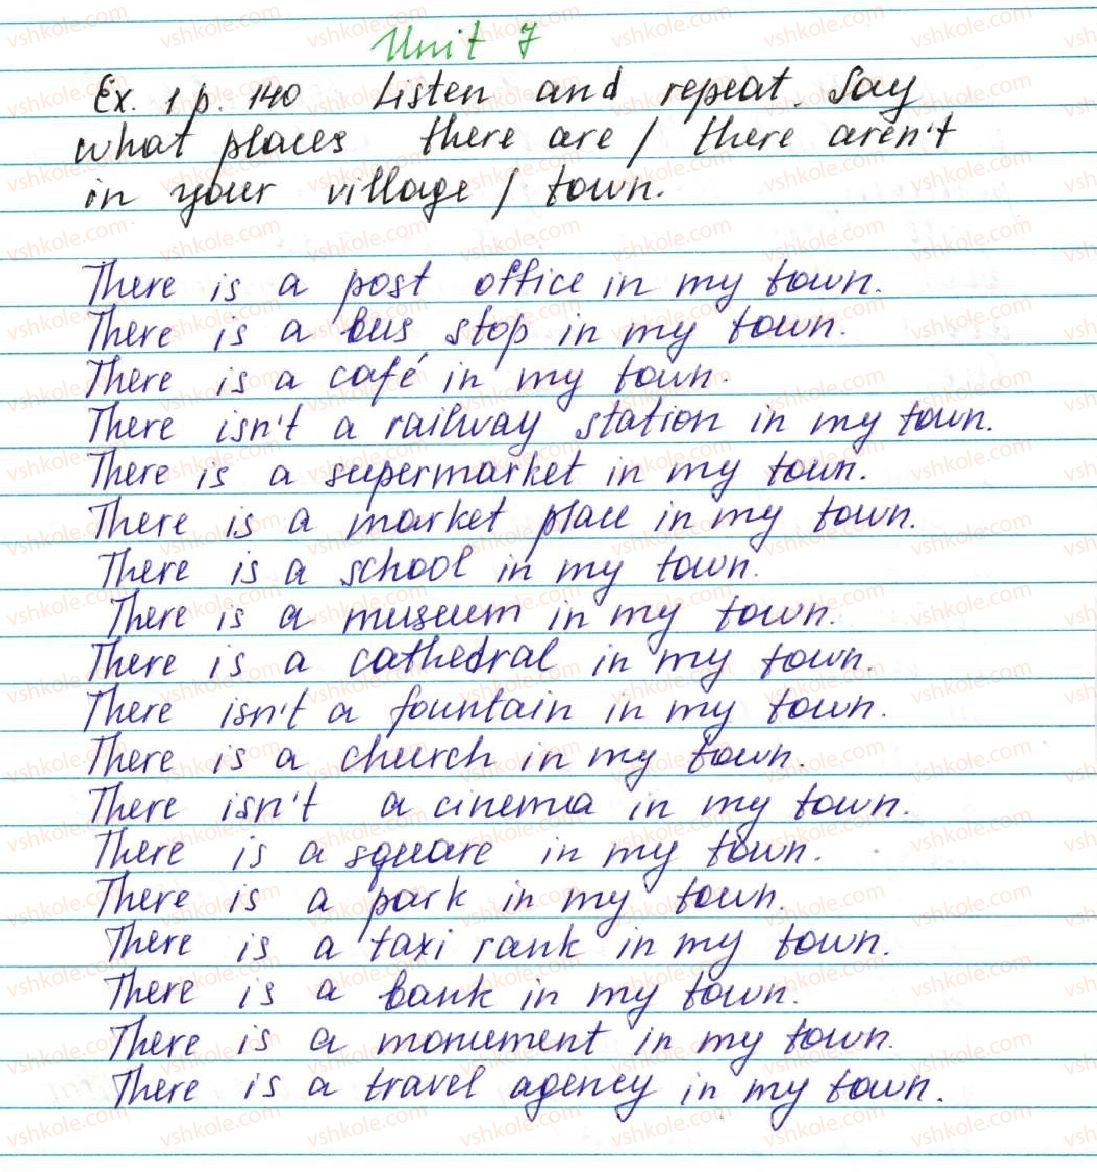 Unit 7
Ex. 1 p. 140 Listen and repeat. Say
what places there are / there aren't
in your village / town.
There is a post office in my town.
There is a bus stop in my town.
There is a café in my town.
There isn't a railway station in my town.
There is a supermarket in my town.
There is a market place in my town.
There is a school in my town.
There is a museum in my town.
There is a cathedral in my town.
There isn't a fountain in my town.
There is a church in my town.
There isn't a cinema in my town.
There is a square in my town.
There is a park in my town.
There is a taxi rank in my town.
There is a bank in my town.
There is a monument in my town.
There is a travel agency in my town.
vshkole.com